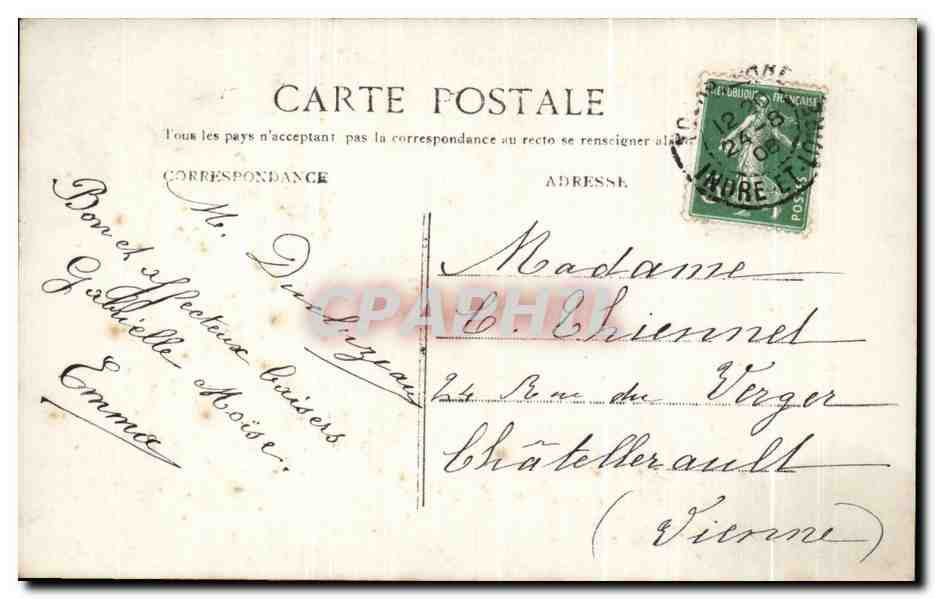 CARTE POSTALE
Tous les pays n'acceptant pas la correspondance au recto se renseigner à la
CORRESPONDANCE
ADRESSE
REPUBLIQUE FRANÇAISE
POSTES
12
24 -8
08
INDRE-ET-LOIRE
Bon et affectueux baisers
Gabrielle Moïse.
Emma
M. Duchizeau
Madame
C. Thiennet
24 Rue du Verger
Châtellerault
(Vienne)
CPAPHIL